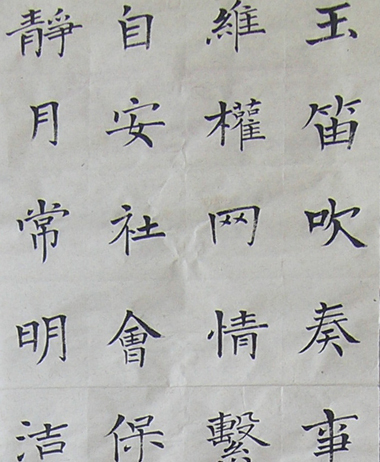 玉笛吹奏事
維權网情繫
自安社會保
靜月常明洁